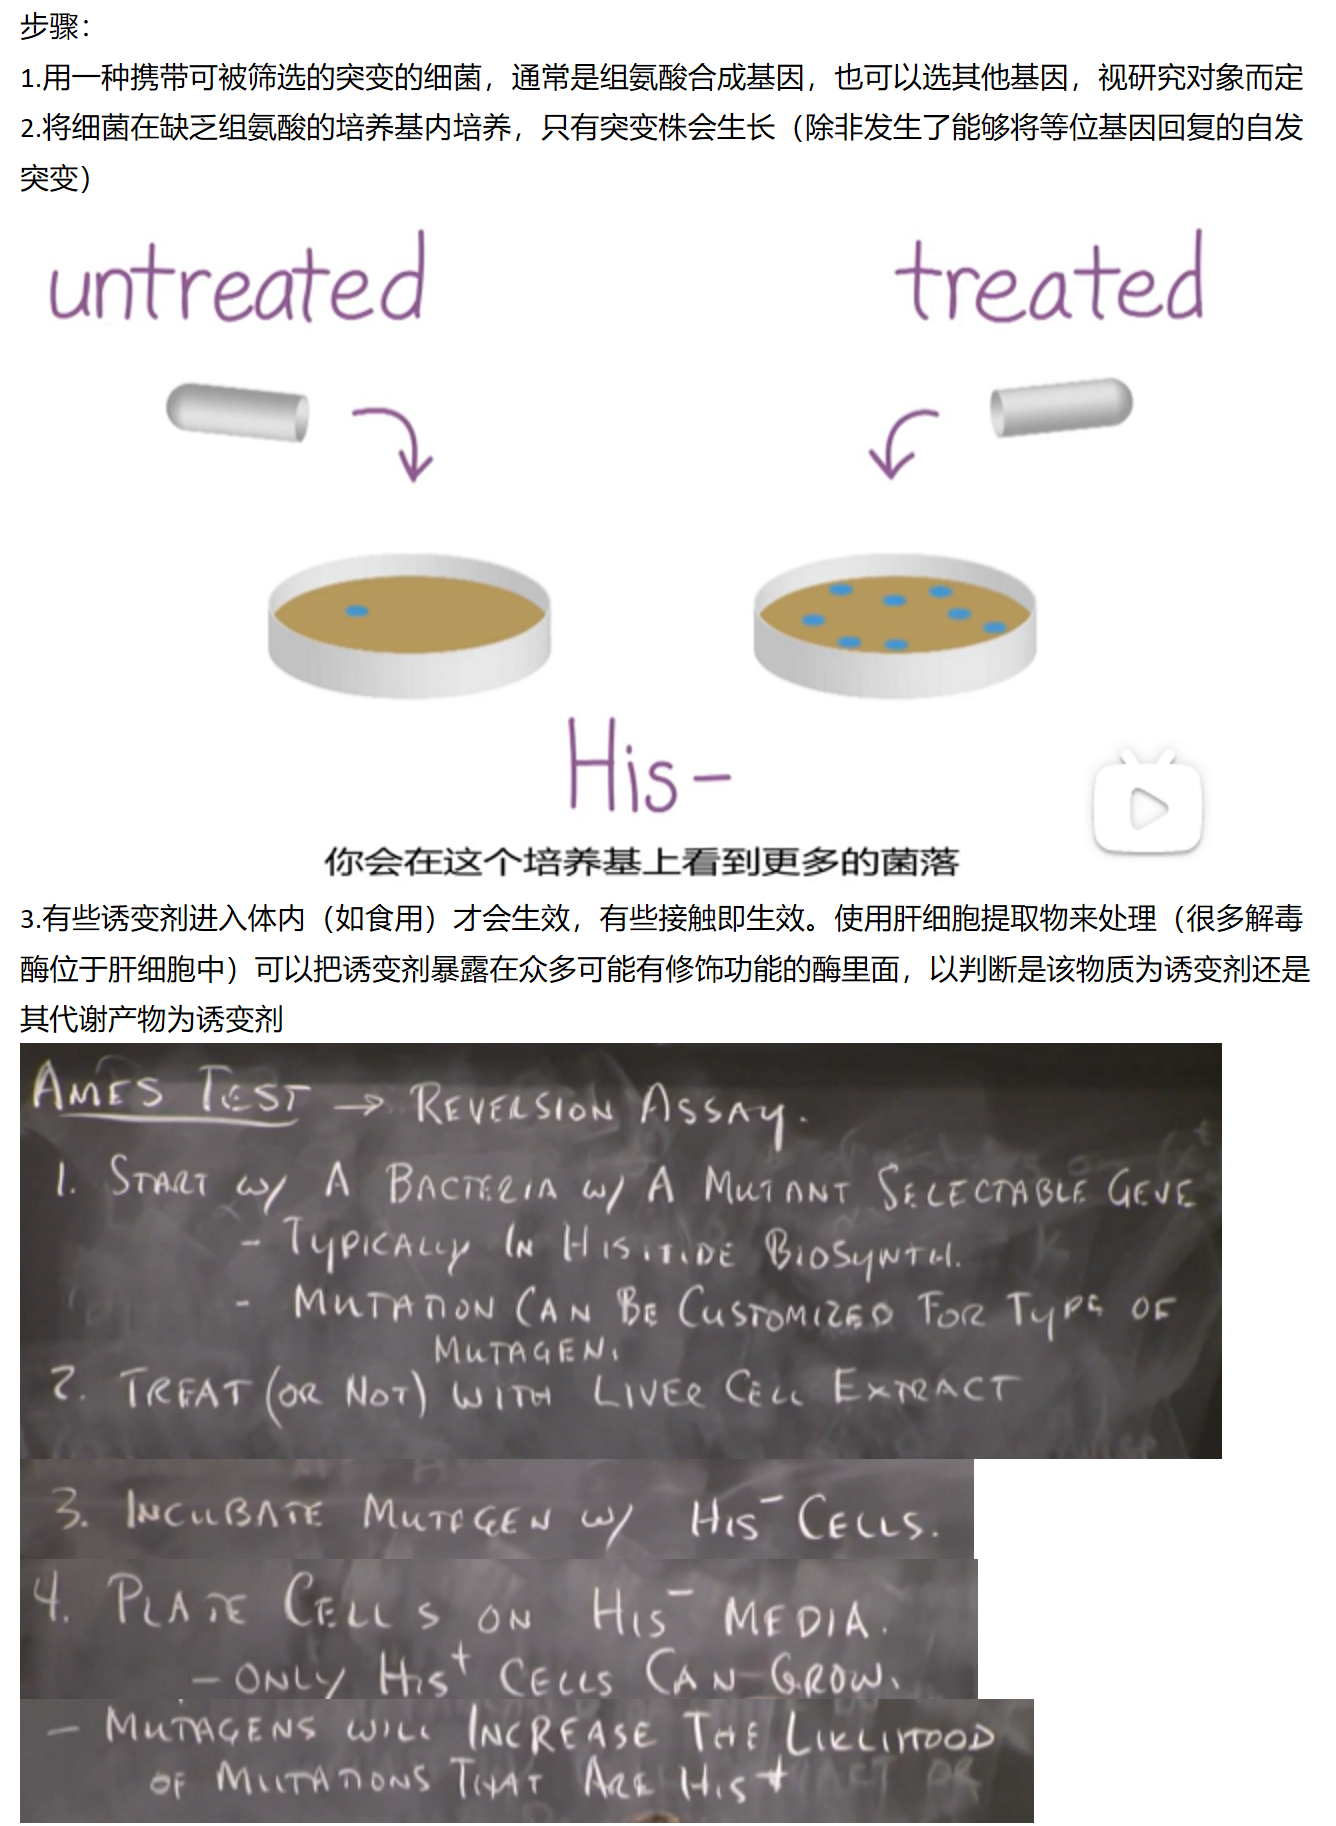 步骤：
1.用一种携带可被筛选的突变的细菌，通常是组氨酸合成基因，也可以选其他基因，视研究对象而定
2.将细菌在缺乏组氨酸的培养基内培养，只有突变株会生长（除非发生了能够将等位基因回复的自发
突变）
untreated
treated
His-
你会在这个培养基上看到更多的菌落
3.有些诱变剂进入体内（如食用）才会生效，有些接触即生效。使用肝细胞提取物来处理（很多解毒
酶位于肝细胞中）可以把诱变剂暴露在众多可能有修饰功能的酶里面，以判断是该物质为诱变剂还是
其代谢产物为诱变剂
AMES TEST → REVERSION ASSAY.
1. START W/ A BACTERIA W/ A MUTANT SELECTABLE GENE
- TYPICALLY IN HISITIDE BIOSYNTH.
- MUTATION CAN BE CUSTOMIZED FOR TYPE OF
MUTAGEN.
2. TREAT (OR NOT) WITH LIVER CELL EXTRACT
3. INCUBATE MUTAGEN W/ HIS⁻ CELLS.
4. PLATE CELLS ON HIS⁻ MEDIA.
- ONLY HIS⁺ CELLS CAN GROW.
- MUTAGENS WILL INCREASE THE LIKLIHOOD
OF MUTATIONS THAT ARE HIS+